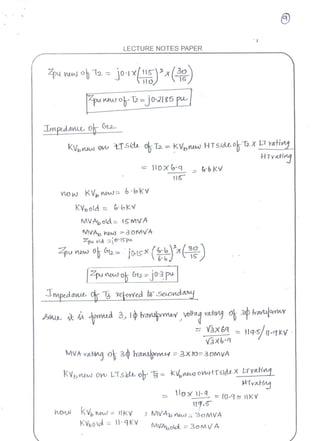 9
LECTURE NOTES PAPER
Zpu new of T2 = j0.1 x (115/110)² x (30/15)
Zpu new of T2 = j0.2185 pu
Impedance of G2
KVb new on LT side of T2 = KVb new HT side of T2 x LT rating / HT rating
= 110 x 6.9 / 115 = 6.6 KV
now KVb new = 6.6 KV
KVb old = 6.6 KV
MVAb old = 15 MVA
MVAb new = 30 MVA
Zpu old = j0.15 pu
Zpu new of G2 = j0.15 x (6.6/6.6)² x (30/15)
Zpu new of G2 = j0.3 pu
Impedance of T3 referred to secondary
it is formed 3, 1ϕ transformer, voltag rating of 3ϕ transformer
= √3x69 / √3x6.9 = 119.5/11.9 KV
MVA rating of 3ϕ transformer = 3 x 10 = 30 MVA
KVb new on LT side of T3 = KVb new on HT side x LT rating / HT rating
= 110 x 11.9 / 119.5 = 10.9 = 11 KV
now KVb new = 11 KV ; MVAb new = 30 MVA
KVb old = 11.9 KV MVAb old = 30 MVA